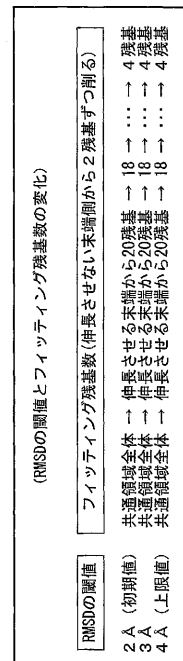 (RMSDの閾値とフィッティング残基数の変化)
RMSDの閾値 フィッティング残基数(伸長させない末端側から2残基ずつ削る)
2Å (初期値) 共通領域全体 → 伸長させる末端から20残基 → 18 → ··· → 4残基
3Å 共通領域全体 → 伸長させる末端から20残基 → 18 → ··· → 4残基
4Å (上限値) 共通領域全体 → 伸長させる末端から20残基 → 18 → ··· → 4残基